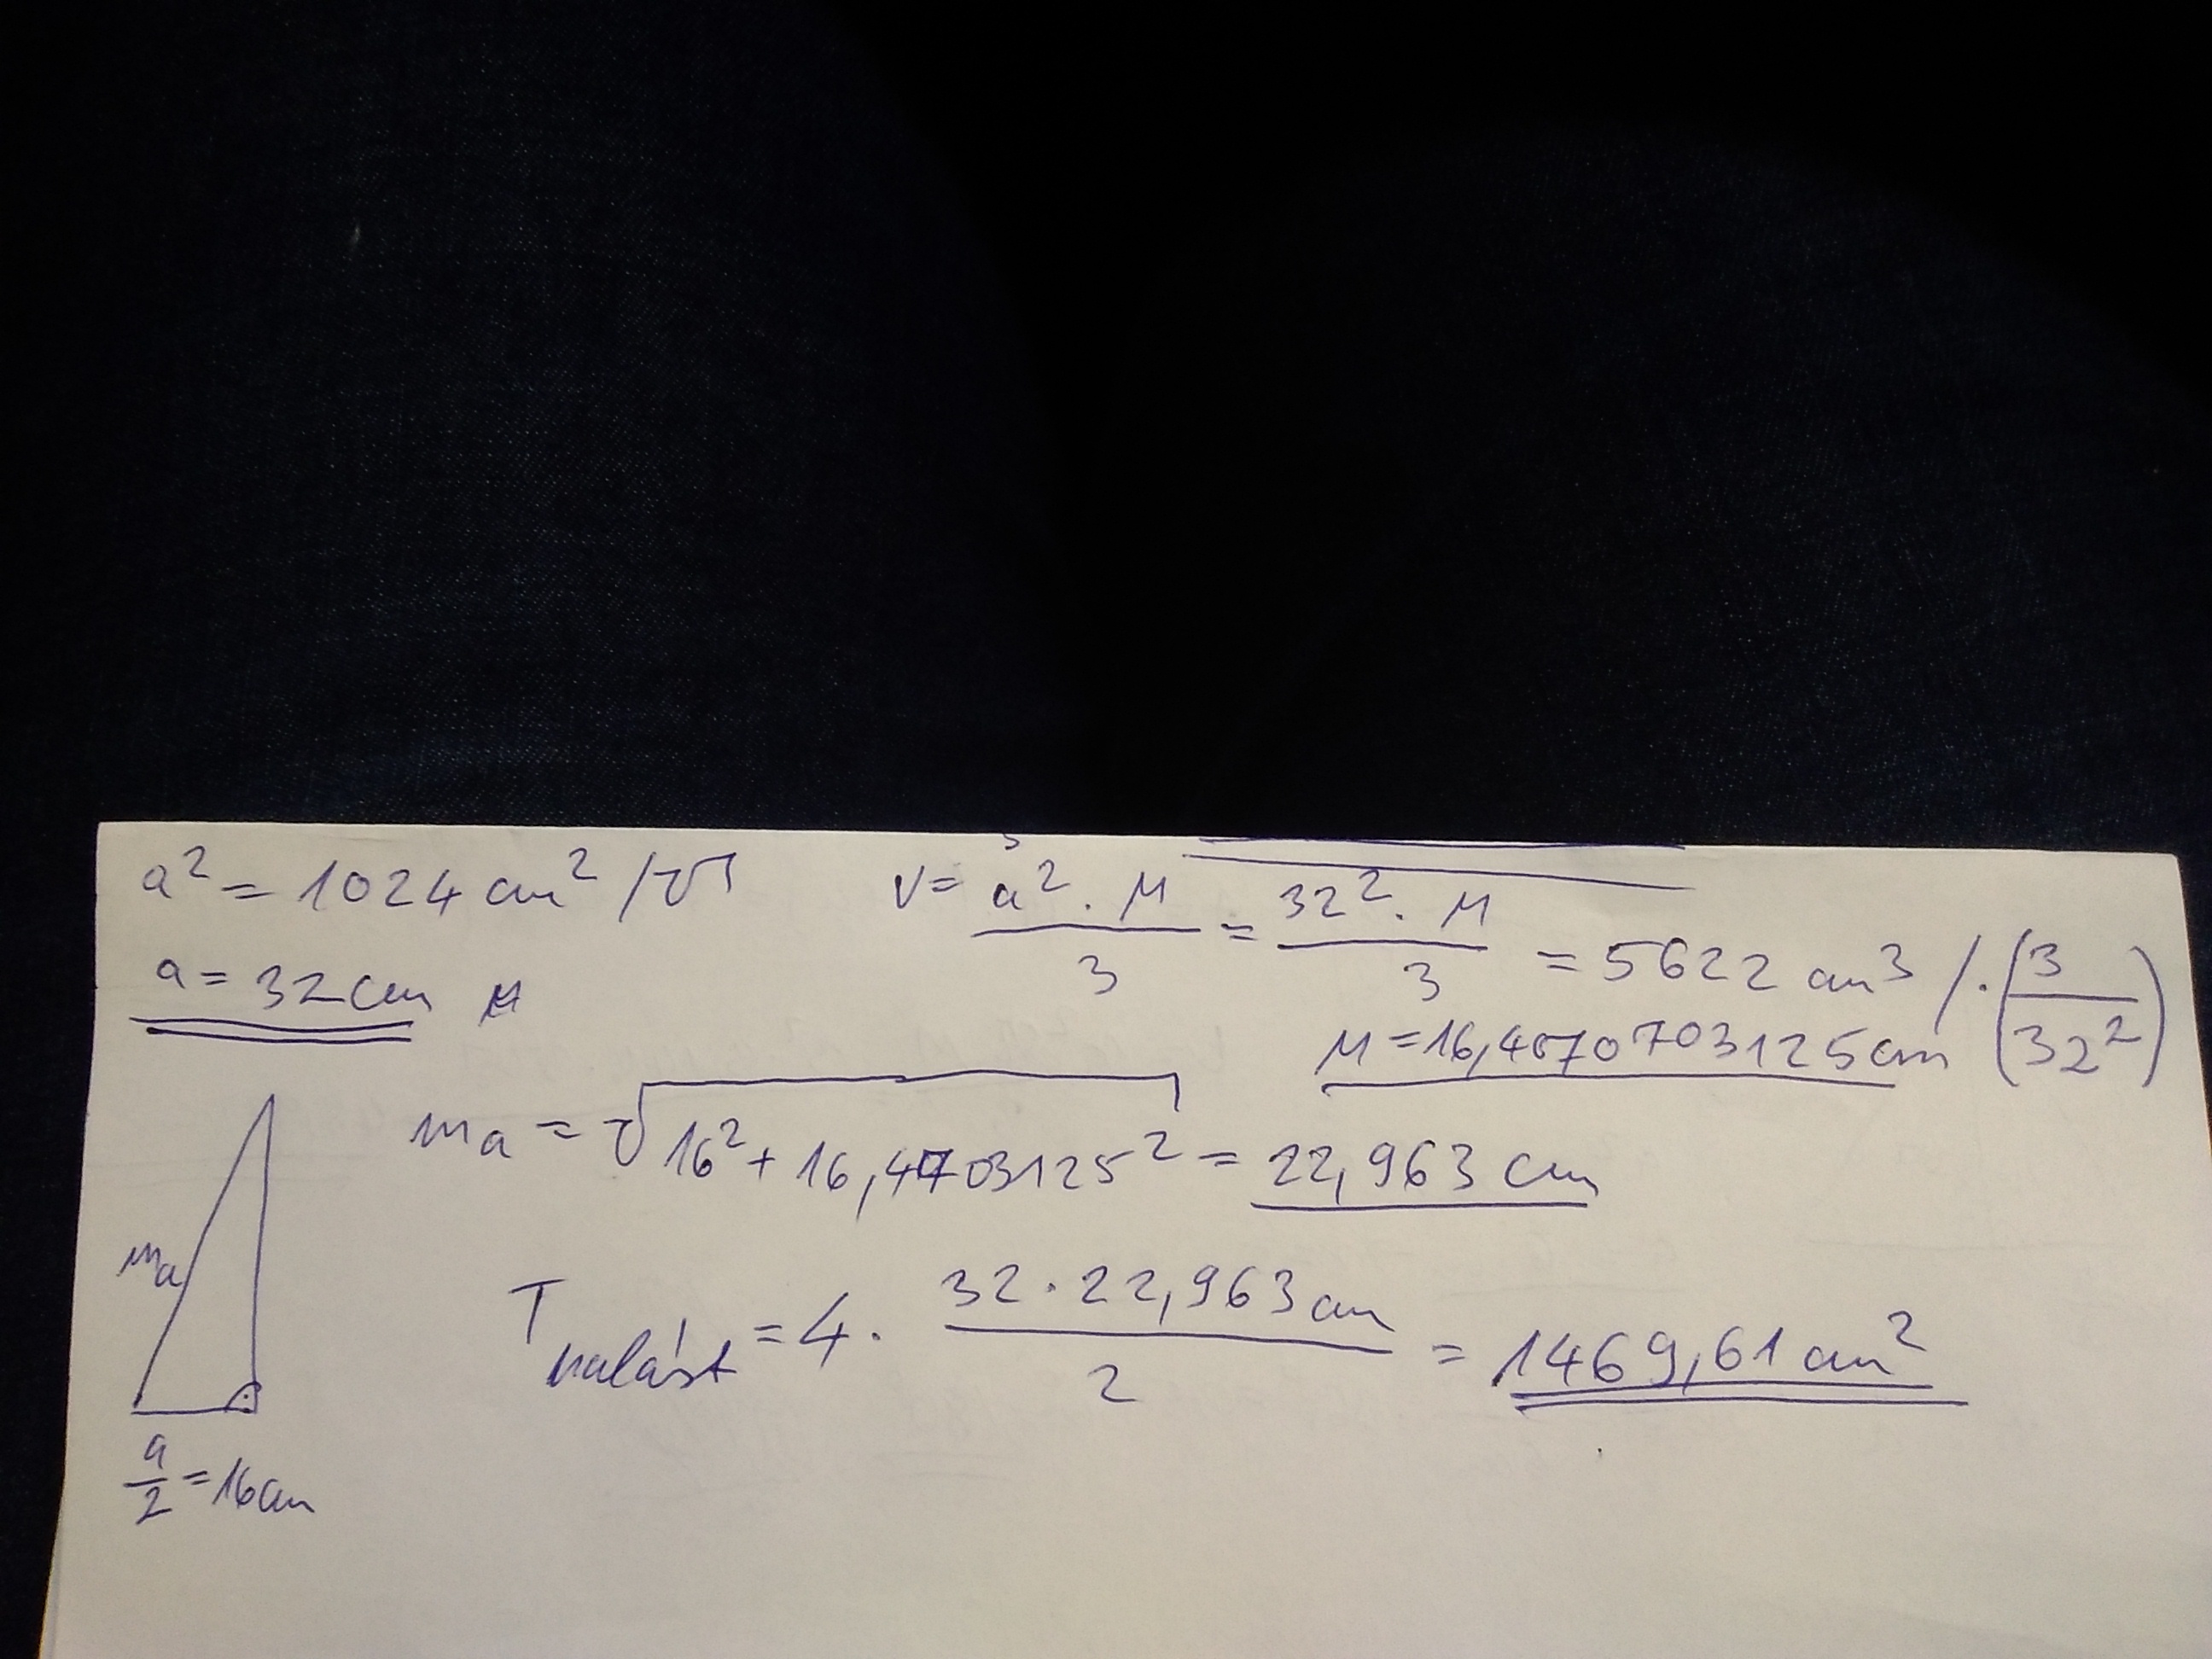 a² = 1024 cm² /√
a = 32 cm M
V = a² · M / 3 = 32² · M / 3 = 5622 cm³ / · (3 / 32²)
M = 16,4070703125 cm
ma = √16² + 16,4703125² = 22,963 cm
ma
a/2 = 16 cm
T palást = 4 · 32 · 22,963 cm / 2 = 1469,61 cm²